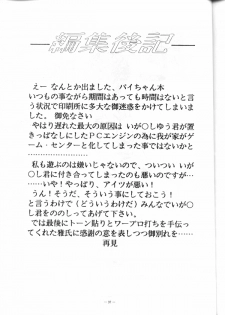 編集後記
えー なんとか出ました、パイちゃん本
いつもの事ながら期間はあっても時間はないと言
う状況で印刷所に多大な御迷惑をかけてしまいまし
た。 御免なさい
やはり遅れた最大の原因は いが〇しゆう君が置
きっぱなしにしたＰＣエンジンの為に我が家がゲ
ーム・センターと化してしまった事ではないかと
・・・・・・・・・・・・・
私も遊ぶのは嫌いじゃないので、ついつい いが
〇し君に付き合ってしまったのも悪いのですが・・
・・・いや！やっぱり、アイツが悪い！
うん！そうだ、そういう事にしておこう！
と言うわけで（どういうわけだ）みんなでいが〇
し君をののしってあげて下さい。
では最後にトーン貼りとワープロ打ちを手伝っ
てくれた雅氏に感謝の意を表しつつ御別れを・・
再見